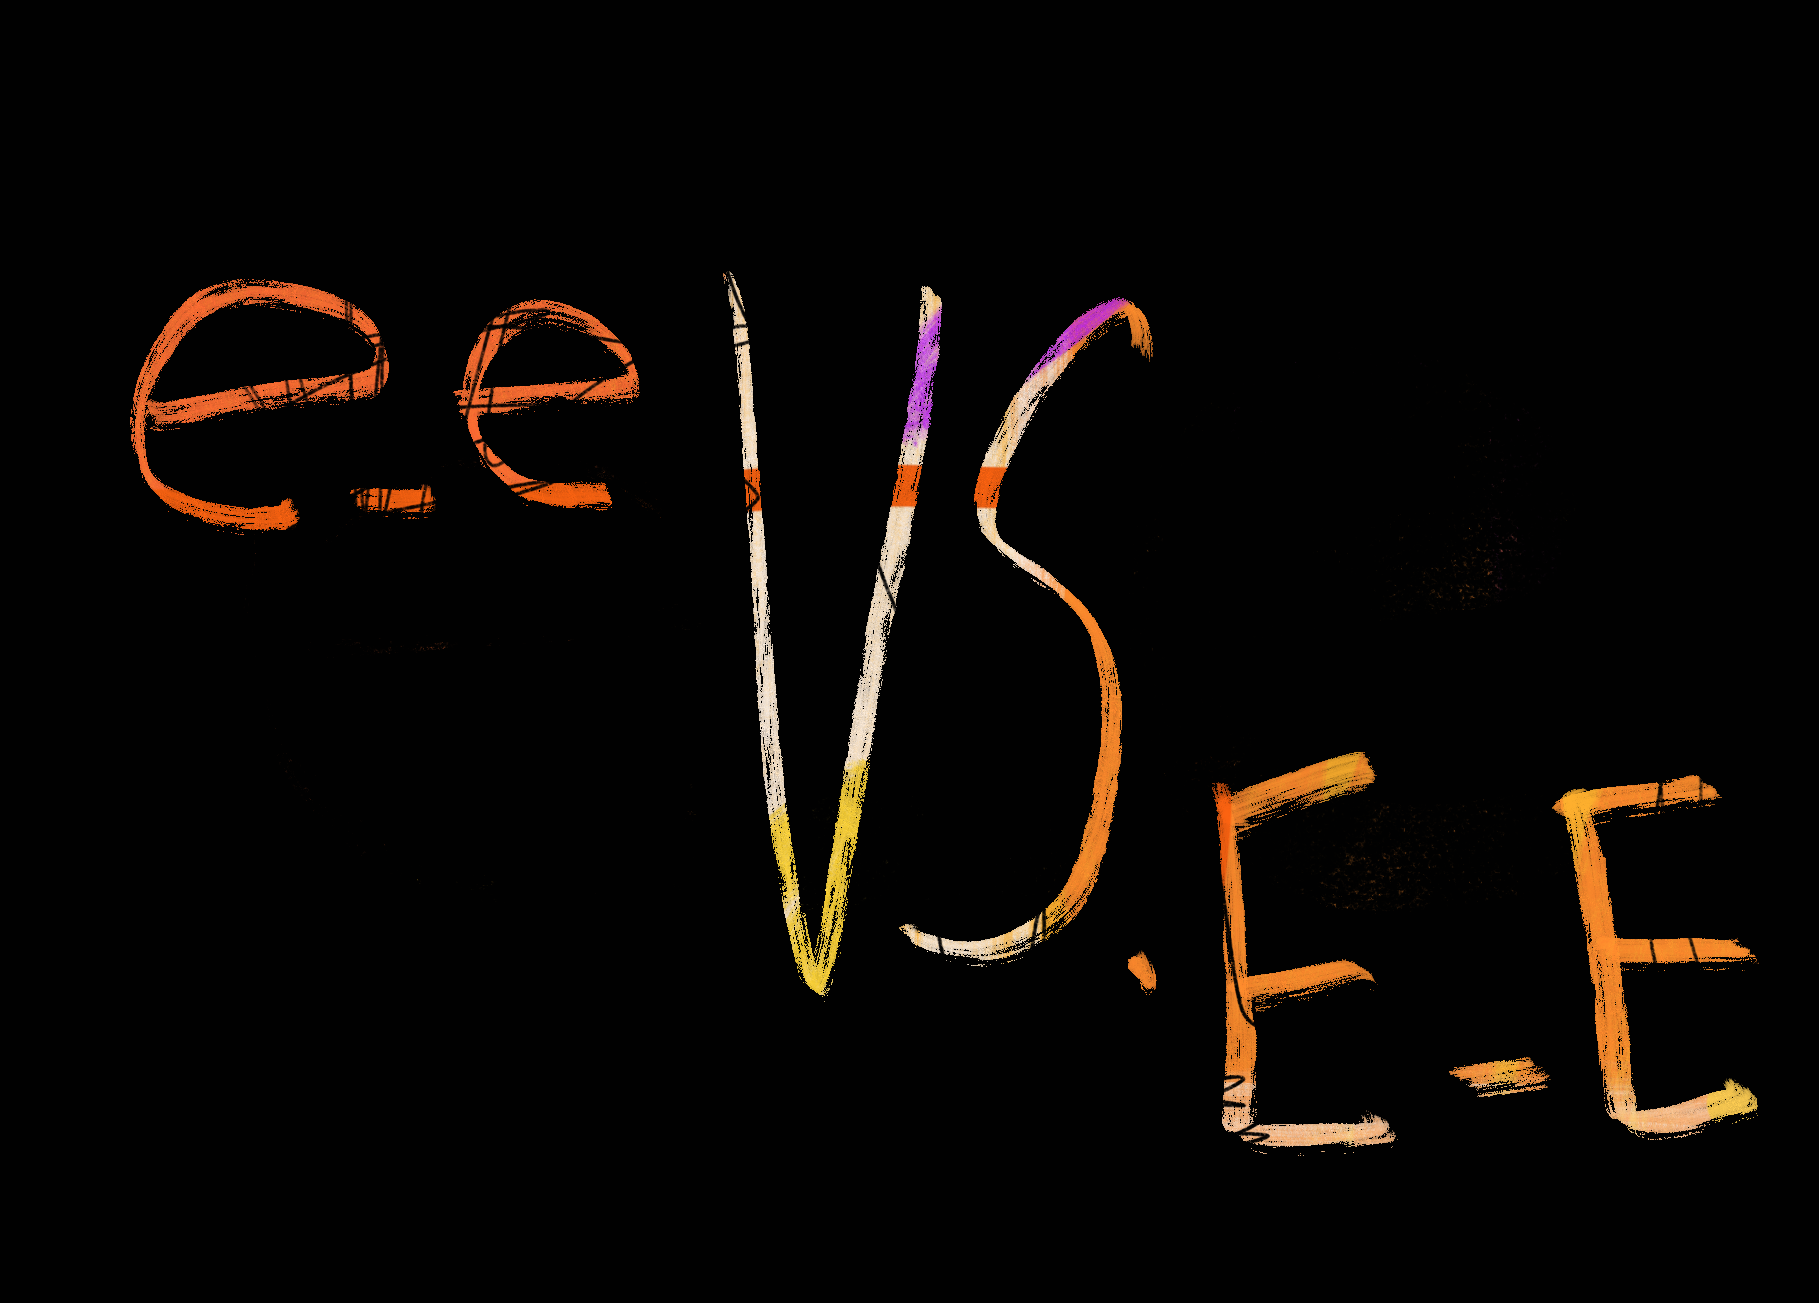 e_e VS.
E_E